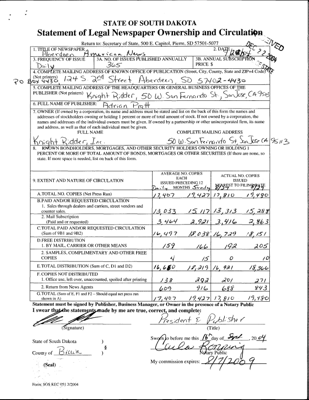 STATE OF SOUTH DAKOTA
Statement of Legal Newspaper Ownership and Circulation
Return to: Secretary of State, 500 E. Capitol, Pierre, SD 57501-5077
1. TITLE OF NEWSPAPER
Aberdeen American News
2. DATE
3. FREQUENCY OF ISSUE
Daily
3A. NO. OF ISSUES PUBLISHED ANNUALLY
365
3B. ANNUAL SUBSCRIPTION PRICE $
4. COMPLETE MAILING ADDRESS OF KNOWN OFFICE OF PUBLICATION (Street, City, County, State and ZIP+4 Code)
(Not printers)
PO Box 4430 124 S 2nd Street Aberdeen, SD 57402-4430
5. COMPLETE MAILING ADDRESS OF THE HEADQUARTERS OR GENERAL BUSINESS OFFICES OF THE
PUBLISHER (Not printer) Knight Ridder, 50 W San Fernando St, San Jose, CA
6. FULL NAME OF PUBLISHER: Adrian Pratt
7. OWNER (If owned by a corporation, its name and address must be stated and list on the back of this form the names and
addresses of stockholders owning or holding 1 percent or more of total amount of stock. If not owned by a corporation, the
names and addresses of the individual owners must be given. If owned by a partnership or other unincorporated firm, its name
and address, as well as that of each individual must be given.
FULL NAME COMPLETE MAILING ADDRESS
Knight Ridder, Inc. 50 W San Fernando St, San Jose CA
8. KNOWN BONDHOLDERS, MORTGAGES, AND OTHER SECURITY HOLDERS OWNING OR HOLDING 1
PERCENT OR MORE OF TOTAL AMOUNT OF BONDS, MORTGAGES OR OTHER SECURITIES (If there are none, so
state. If more space is needed, list on back of this form.
9. EXTENT AND NATURE OF CIRCULATION
AVERAGE NO. COPIES EACH ISSUED PRECEDING 12 MONTHS
Daily Sunday
ACTUAL NO. COPIES ISSUED
A. TOTAL NO. COPIES (Net Press Run) 17,427 17,810
B. PAID AND/OR REQUESTED CIRCULATION
1. Sales through dealers and carriers, street vendors and
counter sales. 13,033 15,117 13,313 15,288
2. Mail Subscription
(Paid and/or requested) 3,464 2,921 3,416 2,863
C. TOTAL PAID AND/OR REQUESTED CIRCULATION
(Sum of 9B1 and 9B2) 16,497 18,038 16,729 18,151
D. FREE DISTRIBUTION
1. BY MAIL, CARRIER OR OTHER MEANS 159 166 192 205
2. SAMPLES, COMPLIMENTARY AND OTHER FREE
COPIES 4 15 0 10
E. TOTAL DISTRIBUTION (Sum of C, D1 and D2) 18,219 16,921 18,366
F. COPIES NOT DISTRIBUTED
1. Office use, left over, unaccounted, spoiled after printing 138 292 201 271
2. Return from News Agents 609 916 688 843
Statement must be signed by Publisher, Business Manager, or Owner in the presence of a Notary Public
I swear that the statements made by me are true, correct, and complete:
President & Publisher
(Signature) (Title)
State of South Dakota )
County of Brown )
(Seal)
Sworn to before me this day of 2004
Notary Public
My commission expires: 8/7/2009